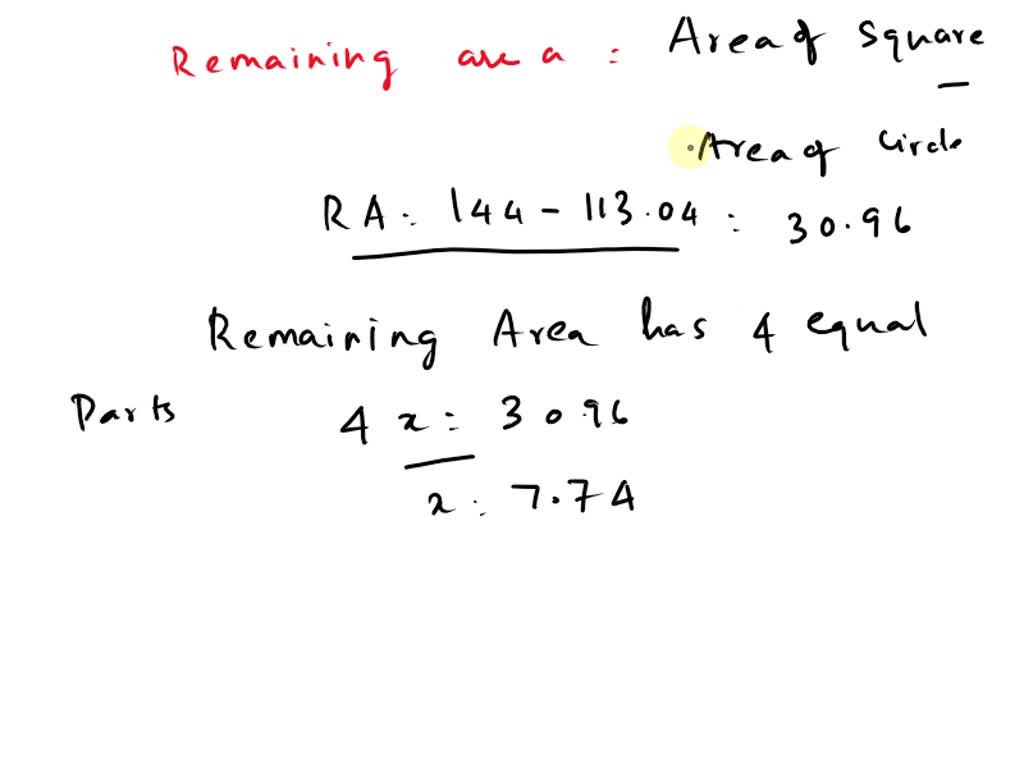 Remaining area : Area of square
—
Area of circle
RA : 144 - 113.04 : 30.96
Remaining Area has 4 equal
Parts
4 x : 30.96
x : 7.74